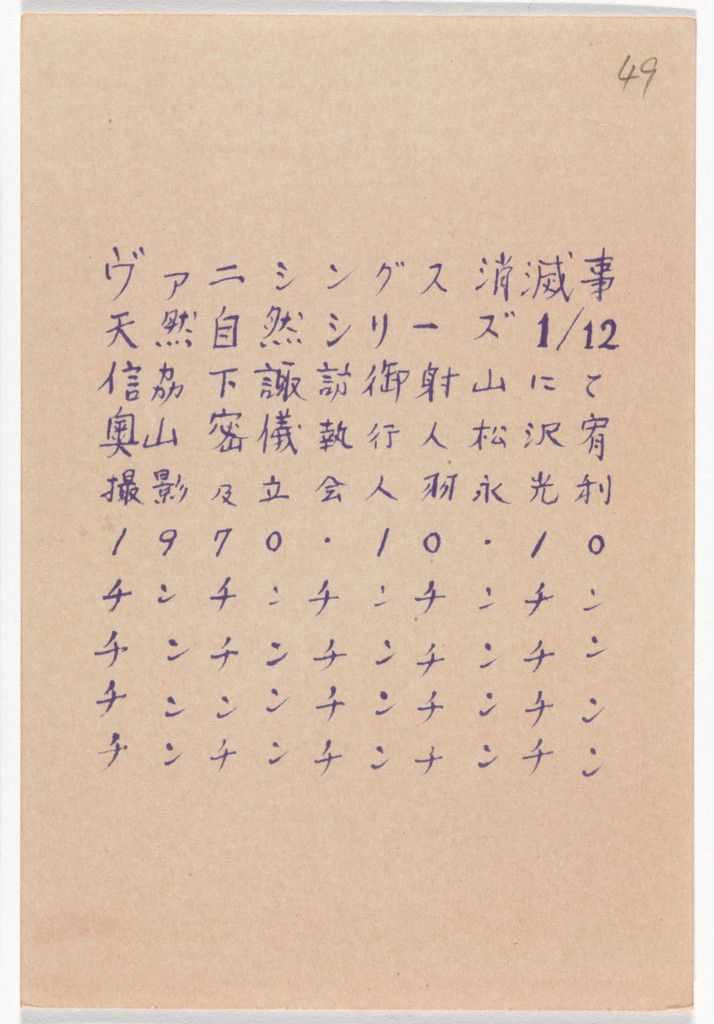 49
ヴァニシングス消滅事
天然自然シリーズ1/12
信刕下諏訪御射山にて
奥山密儀執行人松沢宥
撮影及立会人羽永光利
1970・10・10
チンチンチンチンチン
チンチンチンチンチン
チンンンチンチンチン
チンチンチンチンチン